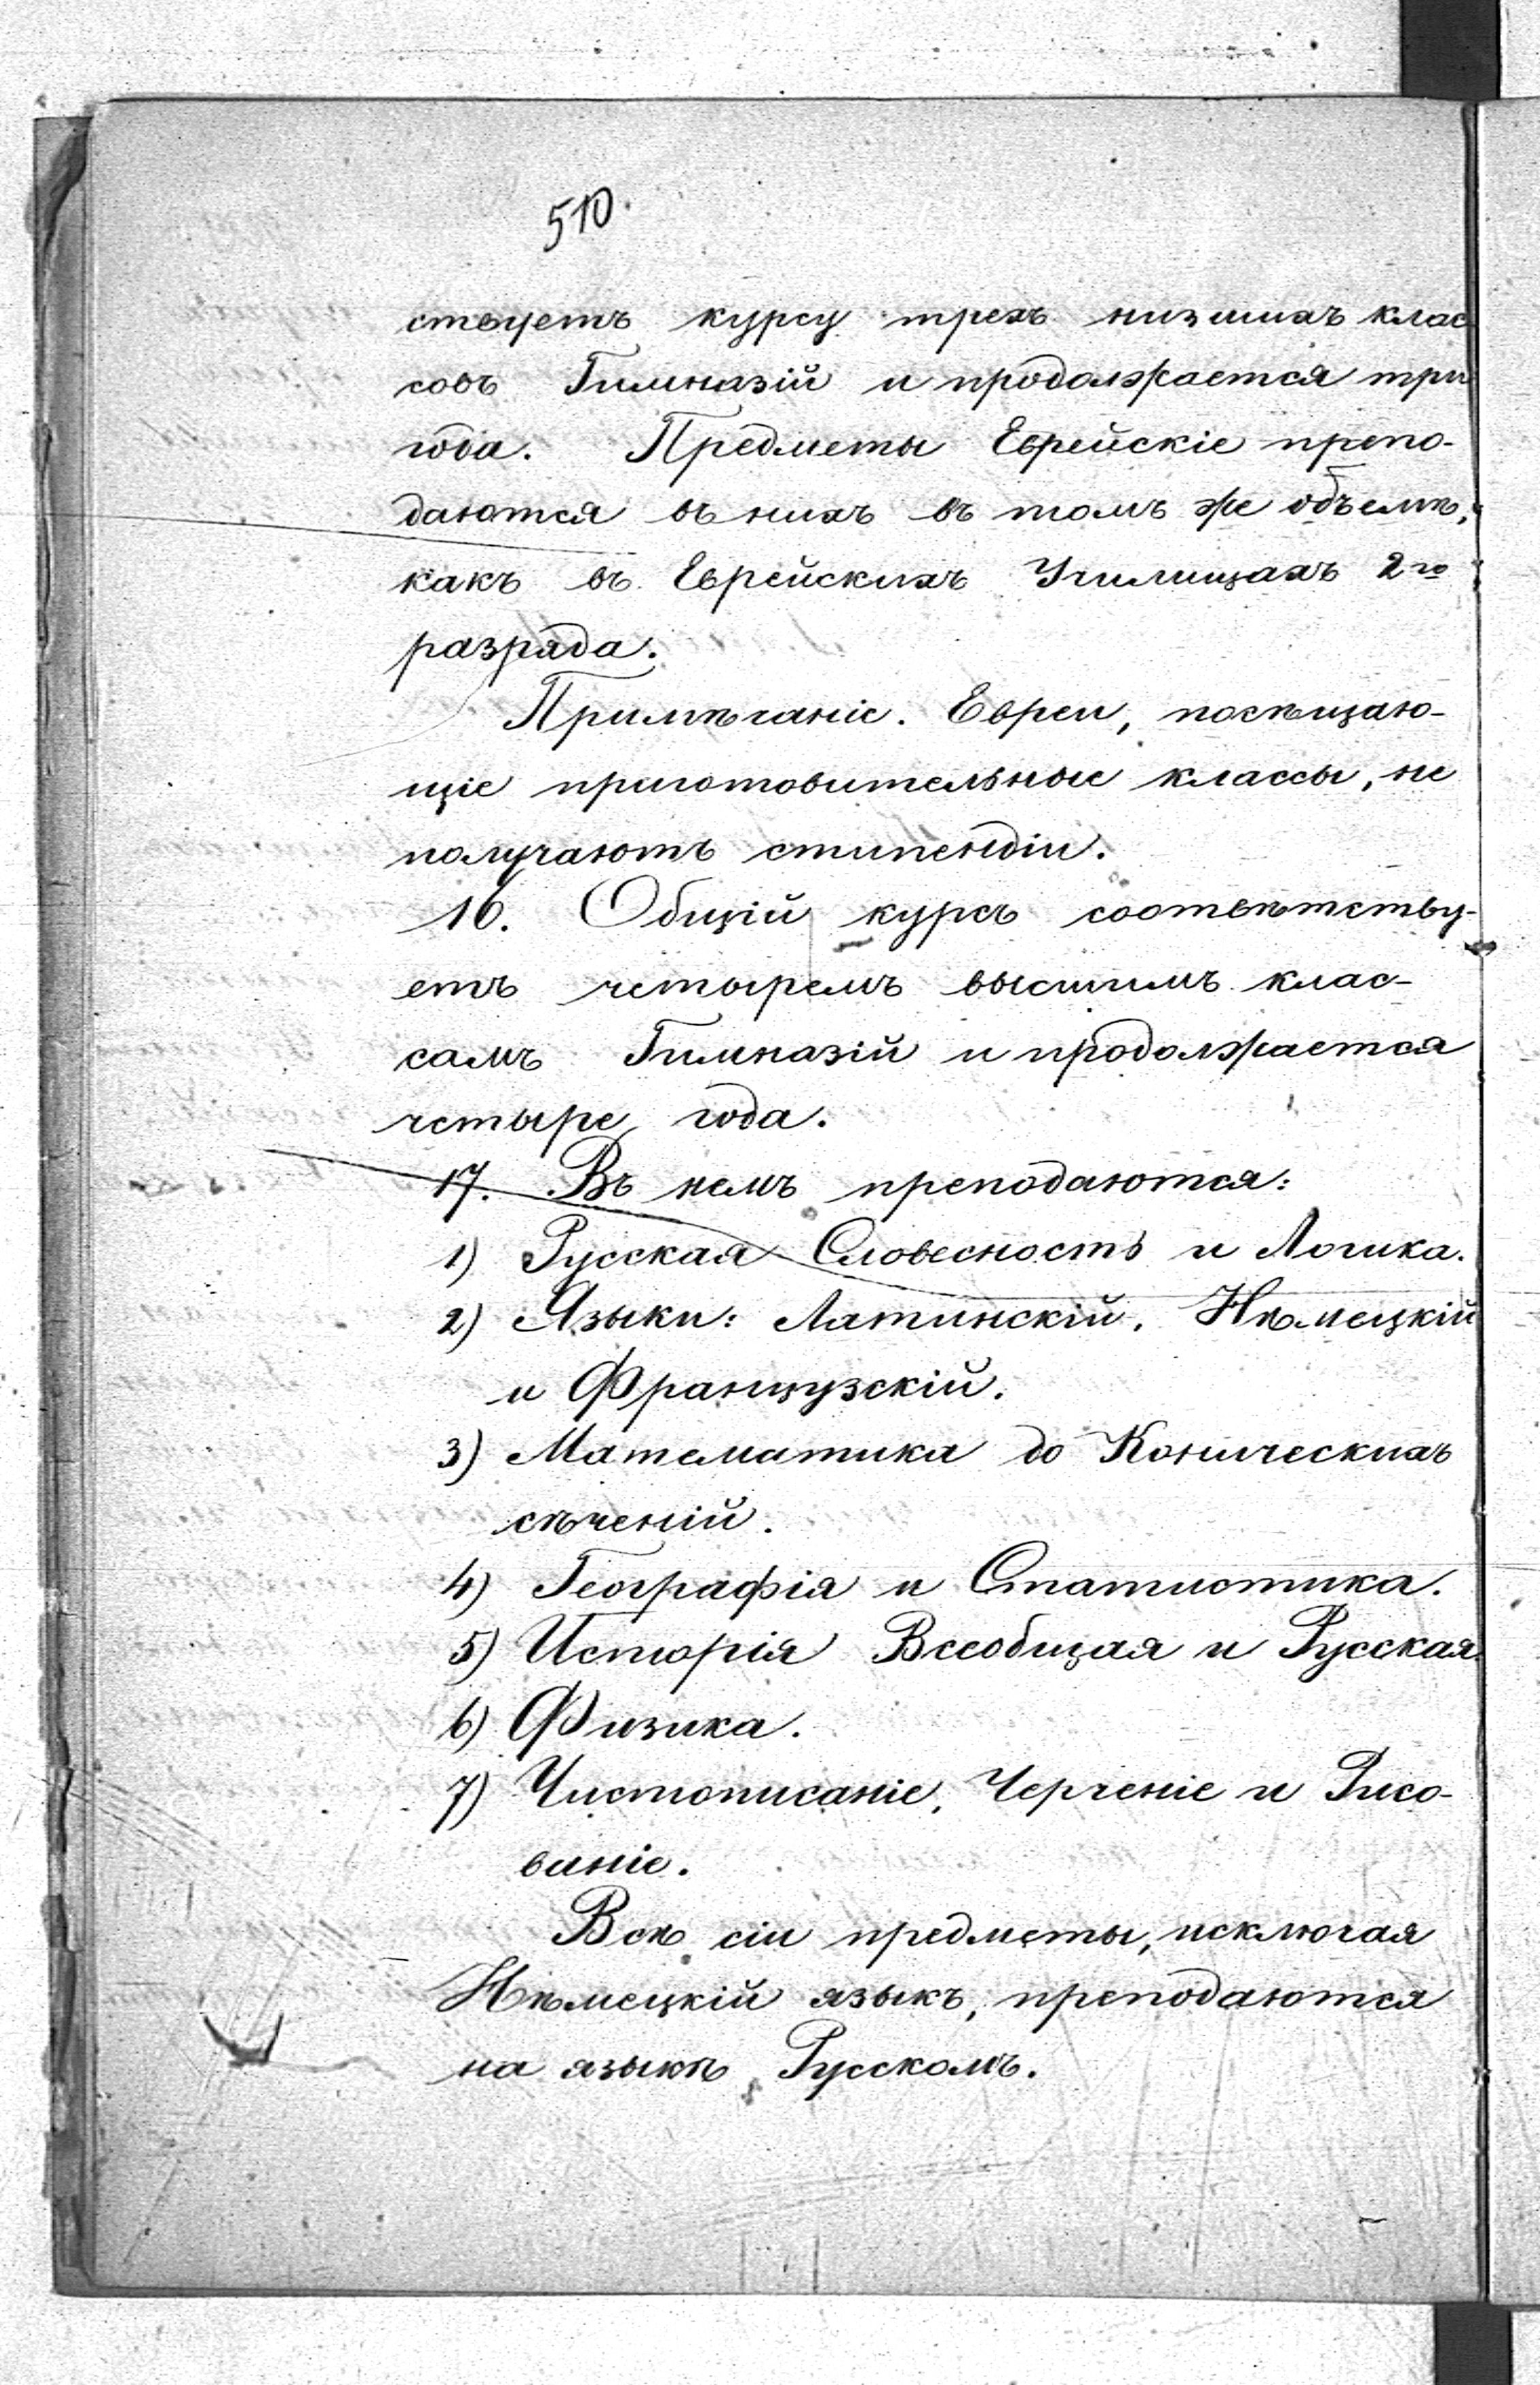 510.
ствуетъ курсу трехъ низшихъ клас
совъ Гимназій и продолжается три
года. Предметы Еврейскіе препо-
даются въ нихъ въ томъ же объемѣ,
какъ въ Еврейскихъ Училищахъ 2го
разряда.
Примѣчаніе. Евреи, посѣщаю-
щіе приготовительные классы, не
получаютъ стипендіи.
16. Общій курсъ соотвѣтству-
етъ четыремъ высшимъ клас-
самъ Гимназій и продолжается
четыре года.
17. Въ немъ преподаются:
1) Русская Словесность и Логика.
2) Языки: Латинскій, Нѣмецкій
и Французскій.
3) Математика до Коническихъ
сѣченій.
4) Географія и Статистика.
5) Исторія Всеобщая и Русская.
6) Физика.
7) Чистописаніе, Черченіе и Рисо-
ваніе.
Всѣ сіи предметы, исключая
Нѣмецкій языкъ, преподаются
на языкѣ Русскомъ.